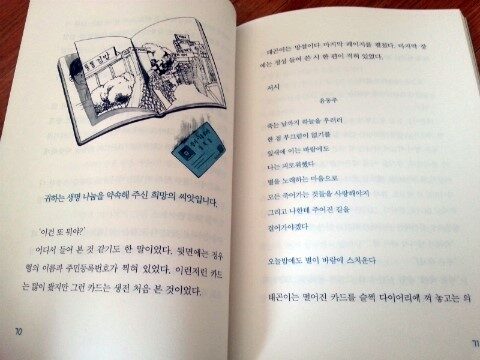 귀하는 생명 나눔을 약속해 주신 희망의 씨앗입니다.
'이건 또 뭐야?'
어디서 들어 본 것 같기도 한 말이었다. 뒷면에는 정우
형의 이름과 주민등록번호가 찍혀 있었다. 이런저런 카드
는 많이 봤지만 그런 카드는 생전 처음 본 것이었다.
70
태곤이는 망설이다 마지막 페이지를 펼쳤다. 마지막 장
에는 정성 들여 쓴 시 한 편이 적혀 있었다.
서시
윤동주
죽는 날까지 하늘을 우러러
한 점 부끄럼이 없기를
잎새에 이는 바람에도
나는 괴로워했다
별을 노래하는 마음으로
모든 죽어가는 것들을 사랑해야지
그리고 나한테 주어진 길을
걸어가야겠다
오늘밤에도 별이 바람에 스치운다
태곤이는 떨어진 카드를 슬쩍 다이어리에 껴 놓고는 의
71